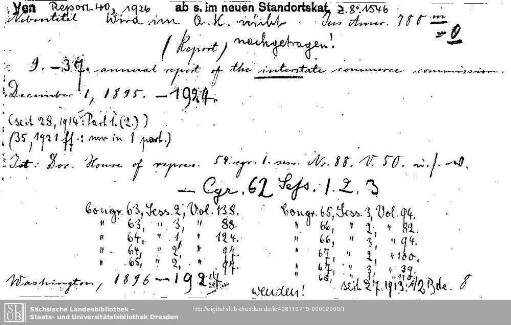 Von Report 40, 1926 ab s. im neuen Standortskat. 2.8° 1546
Nebentitel Wird im A.K. nicht
(Report) nachgetragen!
9. - 37. annual report of the interstate commerce commission.
December 1, 1895. - 1924.
(seit 28, 1914: Part 1. (2.))
(35, 1921 ff.: nur in 1 part.)
Ist: Doc. House of repres. 54. cgr. 1. sess. No. 88. V. 50. u.f.
- Cgr. 62 Sess. 1. 2. 3
Congr. 63, Sess. 2, Vol. 138.
" 63, " 3, " 88.
" 64, " 1, " 124.
" 64, " 2, "
" 65, " 2, "
Congr. 65, Sess. 3, Vol. 94.
" 66, " 2, " 82.
" 66, " 3, " 94.
" 67, " 2, " 100.
" 67, "
" 68, "
Washington, 1896 - 192
wenden!
seit 27. 1913: 1/2 Bde. 8
Sächsische Landesbibliothek –
Staats- und Universitätsbibliothek Dresden